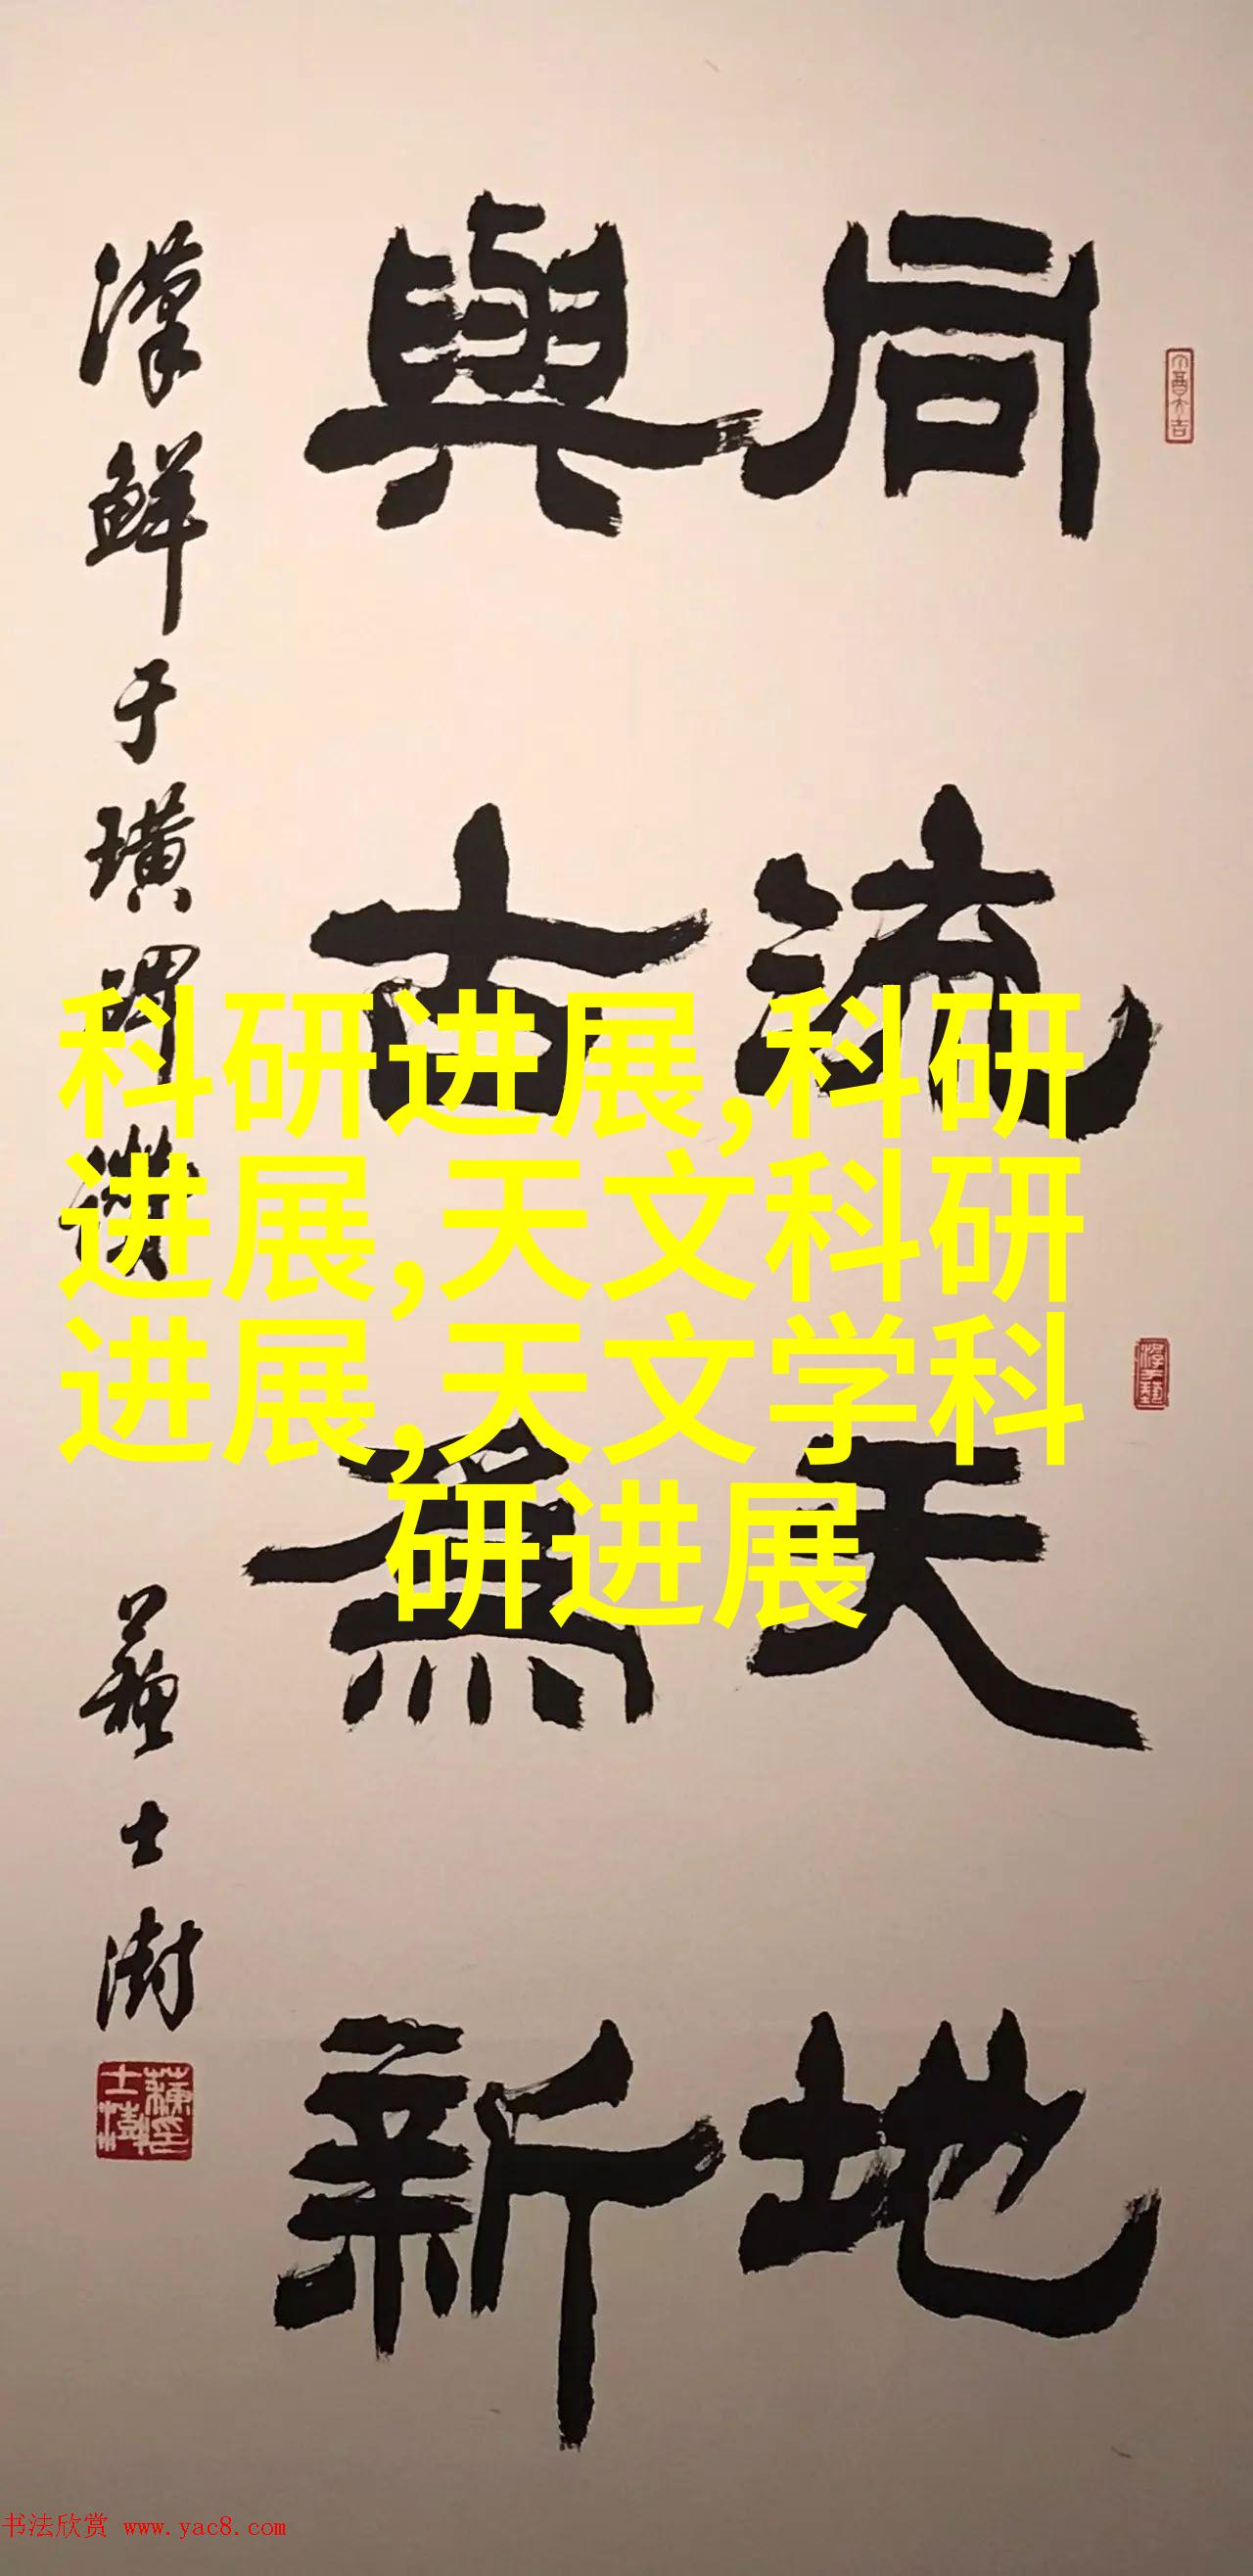 同流天地
與古為新
漢鮮于璜碑
蘇士澍
科研进展,科研
进展,天文科研
进展,天文学科
研进展
书法欣赏 www.yac8.com